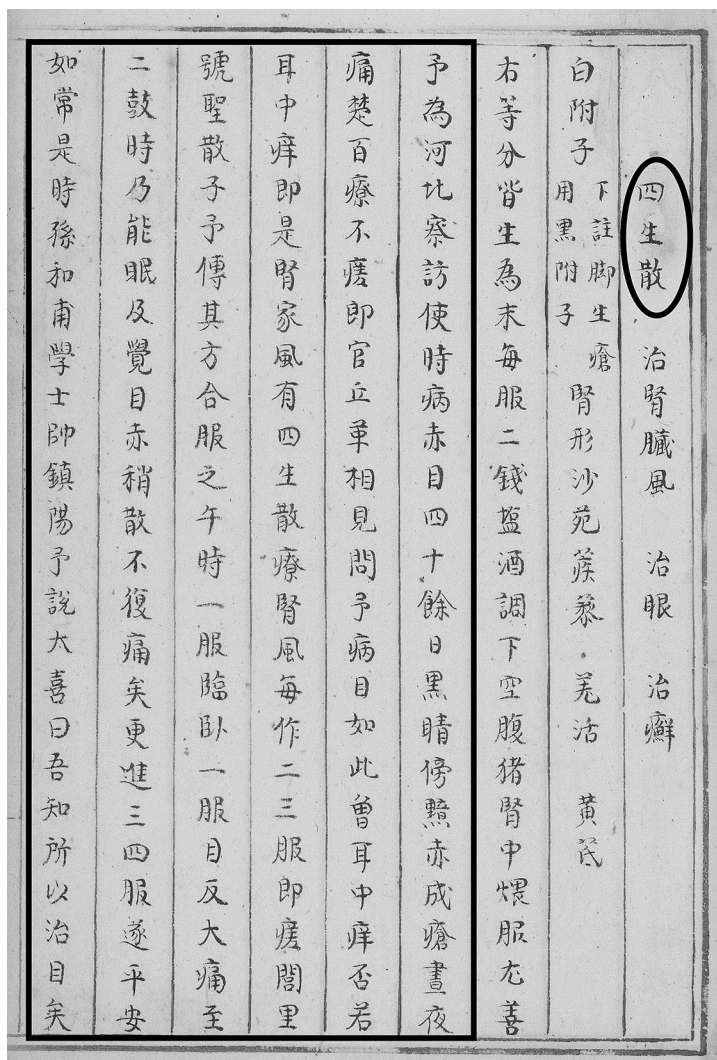 四生散　治腎臟風　治眼　治癬
白附子　下註脚生瘡用黑附子　腎形沙苑蒺藜　羌活　黄芪
右等分皆生為末每服二錢盐酒調下空腹猪腎中煨服尤善
予為河北察訪使時病赤目四十餘日黒睛傍黯赤成瘡晝夜
痛楚百療不瘥即官丘革相見問予病目如此曽耳中痒否若
耳中痒即是腎家風有四生散療腎風每作二三服即瘥閭里
號聖散子予傳其方合服之午時一服臨卧一服目反大痛至
二鼓時乃能眠及覺目赤稍散不復痛矣更進三四服遂平安
如常是時孫和甫學士帥鎮陽予說大喜曰吾知所以治目矣